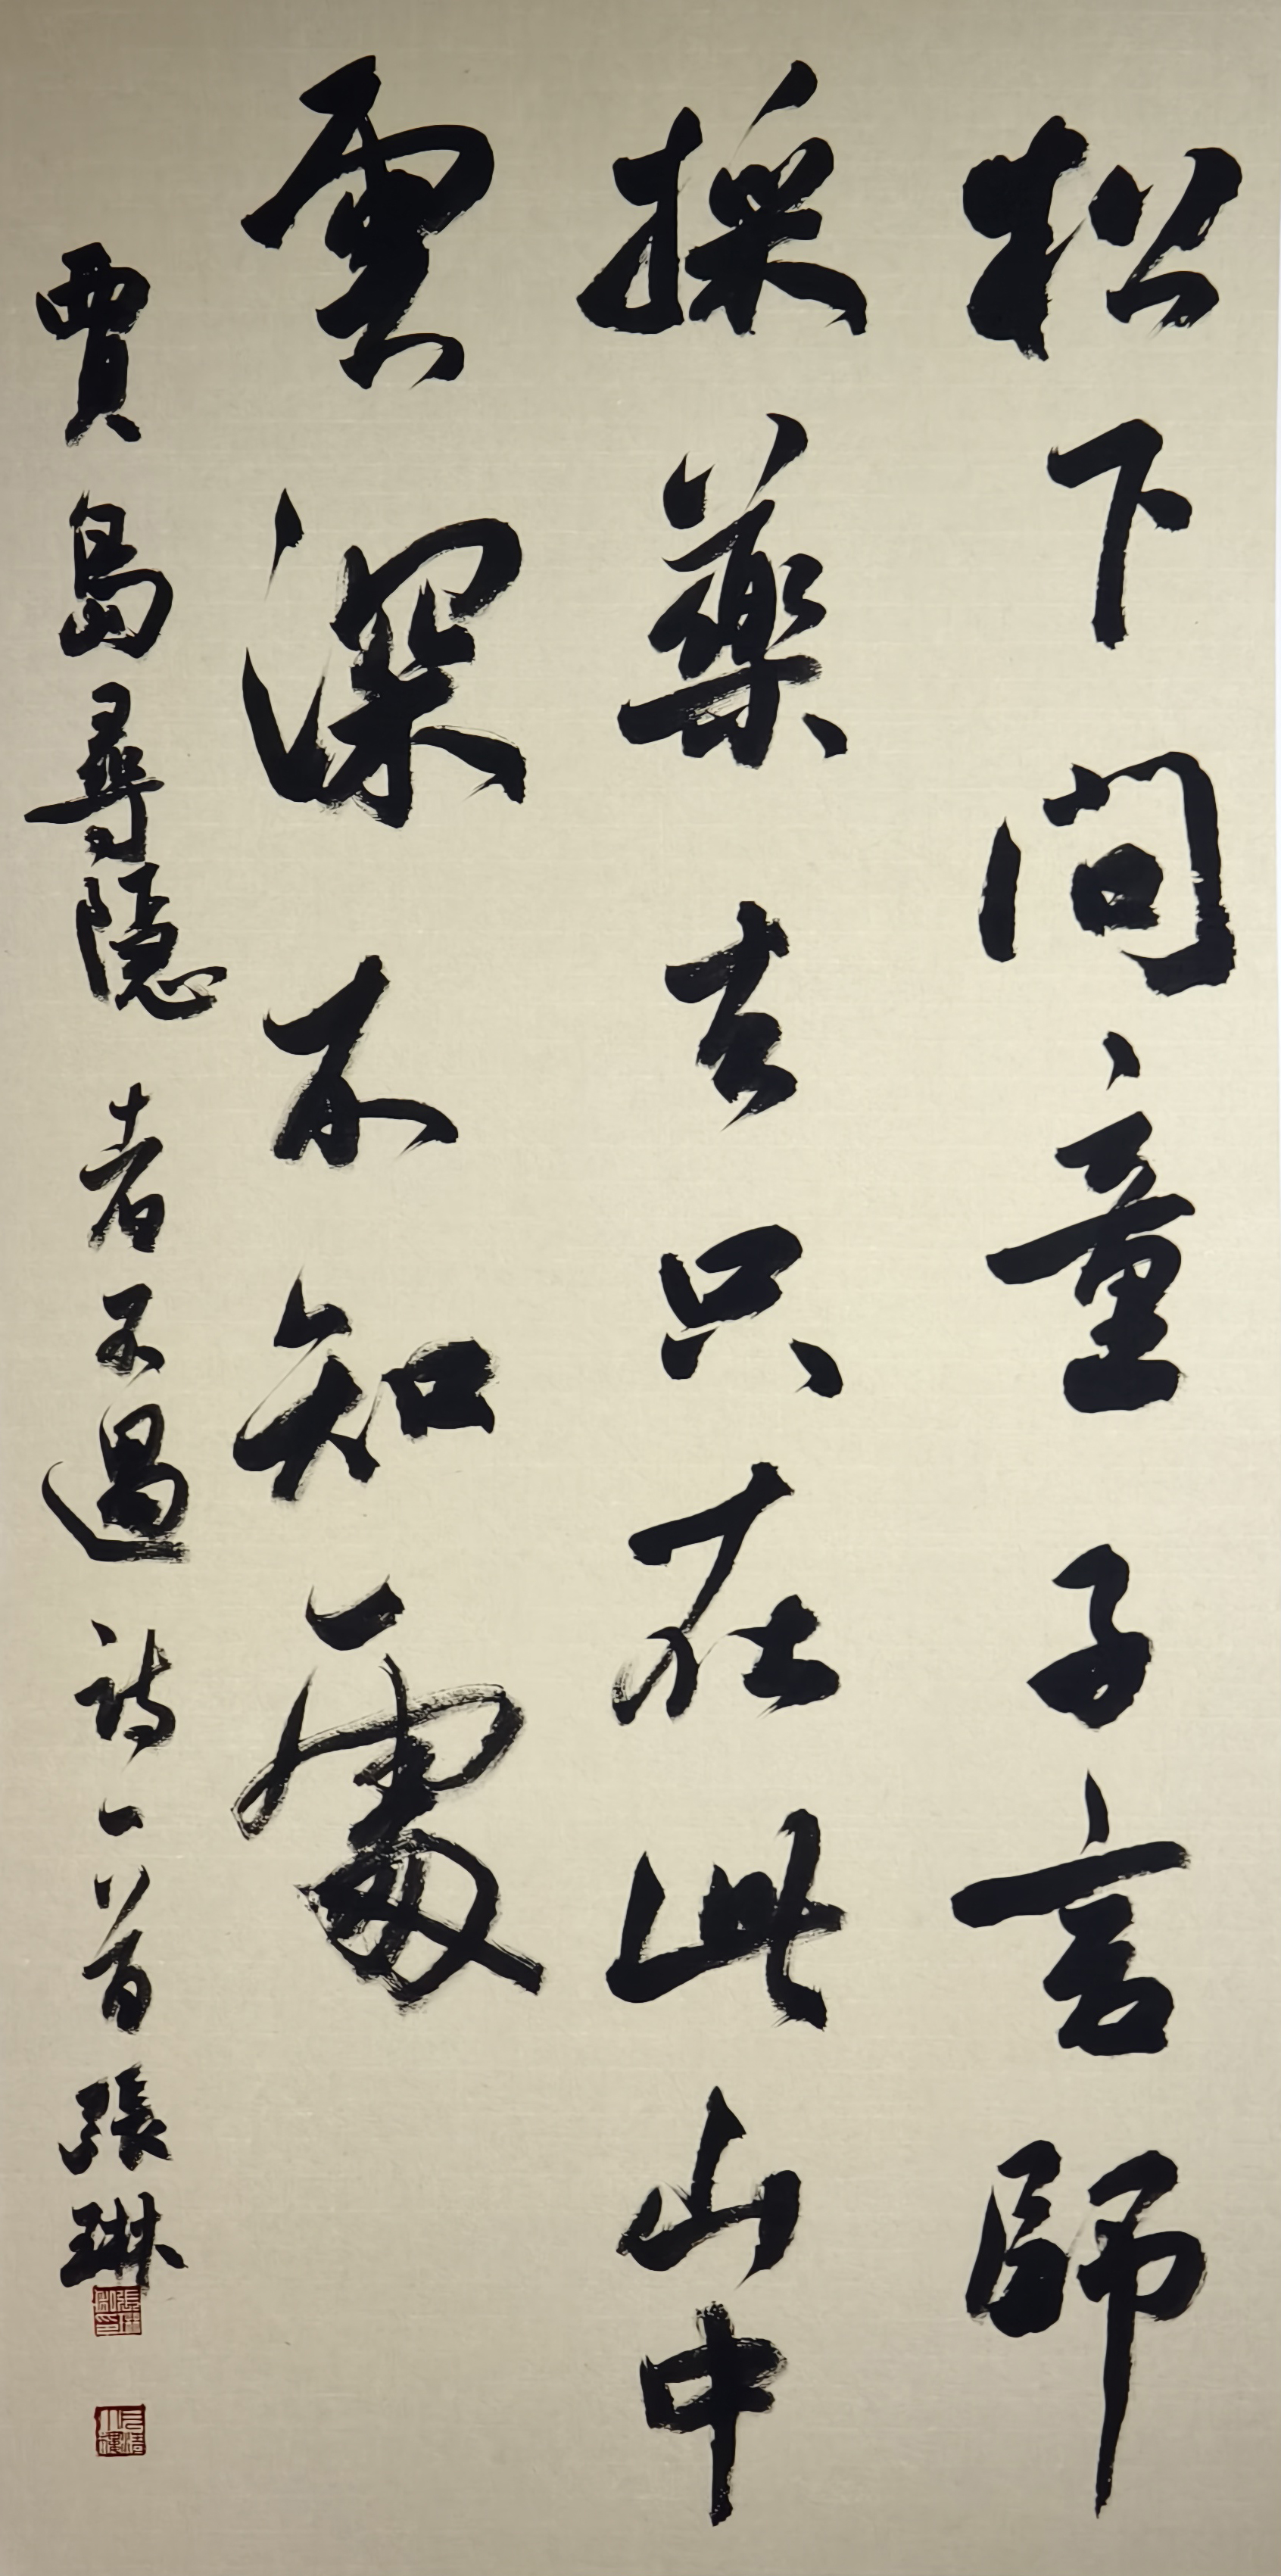 松下问童子言師
採藥去只在此山中
雲深不知處
賈島尋隱者不遇诗一首張琳